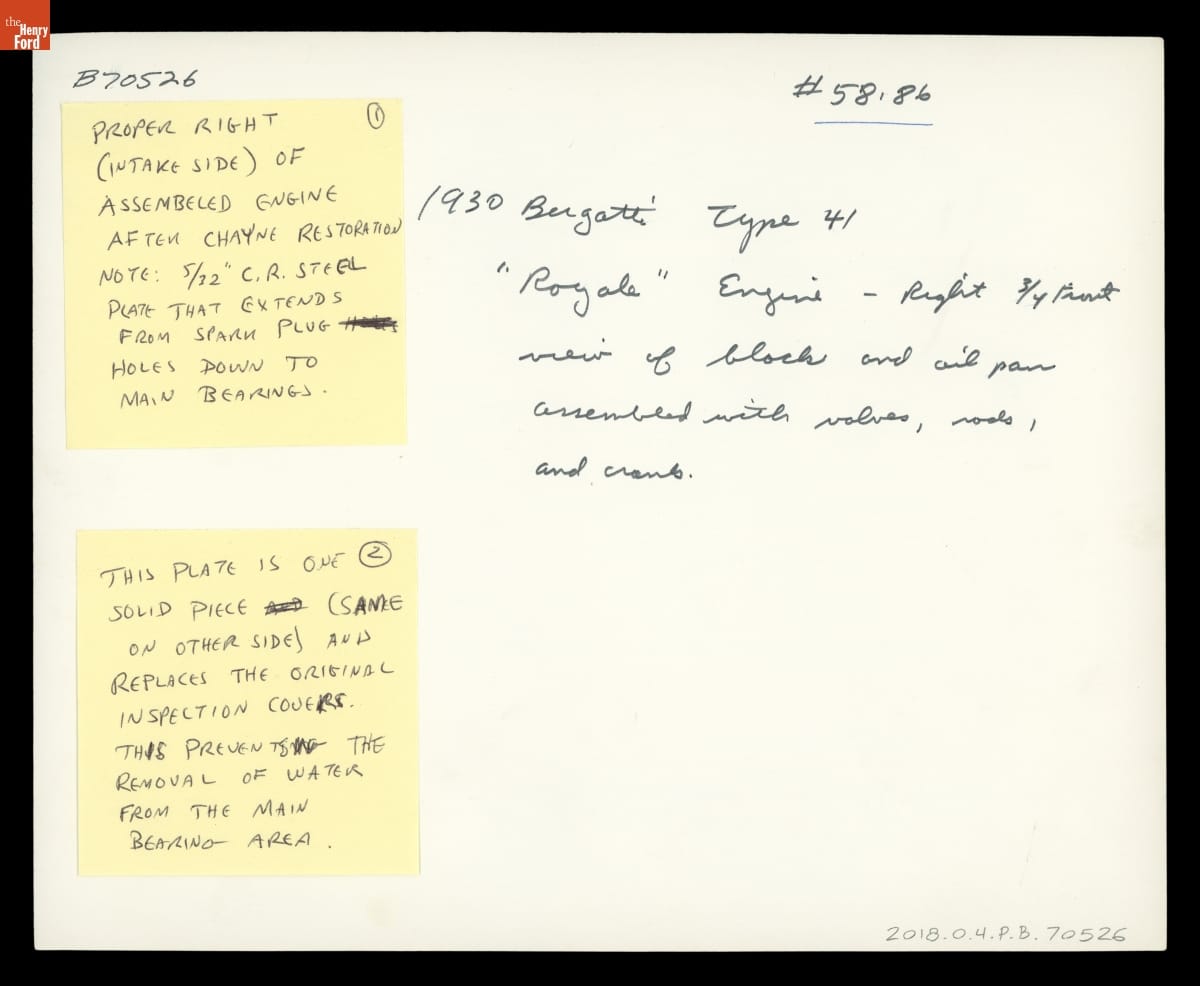 the
Henry
Ford
B70526
#58.86
①
PROPER RIGHT
(INTAKE SIDE) OF
ASSEMBELED ENGINE
AFTER CHAYNE RESTORATION
NOTE: 5/32" C.R. STEEL
PLATE THAT EXTENDS
FROM SPARK PLUG
HOLES DOWN TO
MAIN BEARINGS.
1930 Bugatti Type 41
"Royale" Engine - Right 3/4 Front
view of block and oil pan
assembled with valves, rods,
and crank.
②
THIS PLATE IS ONE
SOLID PIECE (SAME
ON OTHER SIDE) AND
REPLACES THE ORIGINAL
INSPECTION COVERS.
THIS PREVENTS THE
REMOVAL OF WATER
FROM THE MAIN
BEARING AREA.
2018.0.4.P.B.70526